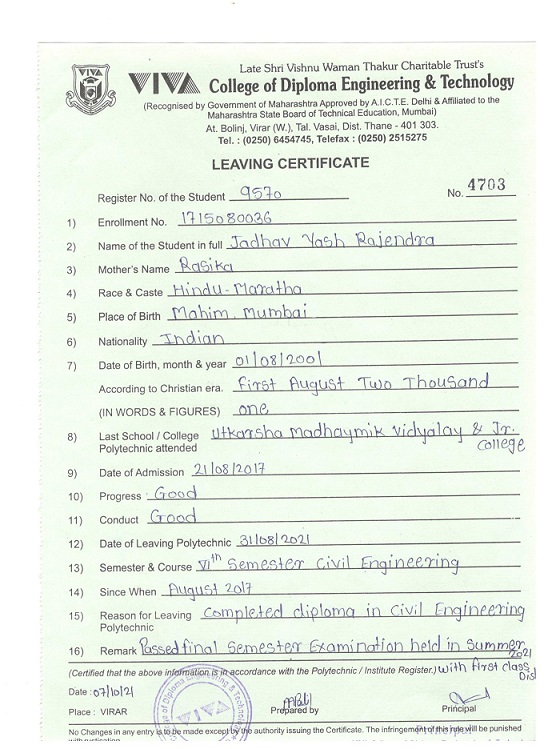 VIVA
Late Shri Vishnu Waman Thakur Charitable Trust's
VIVA College of Diploma Engineering & Technology
(Recognised by Government of Maharashtra Approved by A.I.C.T.E. Delhi & Affiliated to the
Maharashtra State Board of Technical Education, Mumbai)
At. Bolinj, Virar (W.), Tal. Vasai, Dist. Thane - 401 303.
Tel. : (0250) 6454745, Telefax : (0250) 2515275
LEAVING CERTIFICATE
Register No. of the Student 9570 No. 4703
1) Enrollment No. 1715080036
2) Name of the Student in full Jadhav Yash Rajendra
3) Mother's Name Rasika
4) Race & Caste Hindu-Maratha
5) Place of Birth Mahim, Mumbai
6) Nationality Indian
7) Date of Birth, month & year 01/08/2001
According to Christian era. First August Two Thousand
(IN WORDS & FIGURES) one
8) Last School / College Utkarsha Madhaymik Vidyalay & Jr.
Polytechnic attended College
9) Date of Admission 21/08/2017
10) Progress : Good
11) Conduct Good
12) Date of Leaving Polytechnic 31/08/2021
13) Semester & Course VIth Semester Civil Engineering
14) Since When August 2017
15) Reason for Leaving Completed diploma in Civil Engineering
Polytechnic
16) Remark Passed final Semester Examination held in Summer
2021
(Certified that the above information is in accordance with the Polytechnic / Institute Register.) with first class
Dist
Date : 07/10/21
Place : VIRAR Prepared by Principal
College of Diploma Engineering & Technology
VIVA
No Changes in any entry is to be made except by the authority issuing the Certificate. The infringement of this rule will be punished